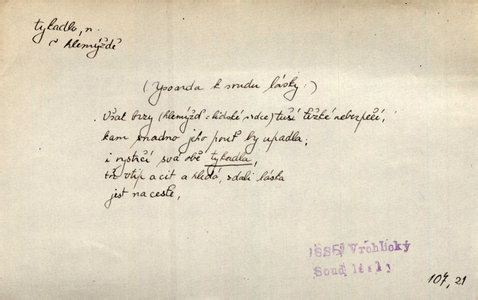 tykadlo, n.
hlemýždě
( k soudu lásky.)
Však brzy (hlemýžď = lidské srdce) tuší těžké nebezpečí,
kam snadno jeho pouť by upadla,
i vystrčí svá obě tykadla,
tož vtip a cit a hledá, zdali láska
jest na cestě,
SSE Vrchlický
Soud lásky
107, 21